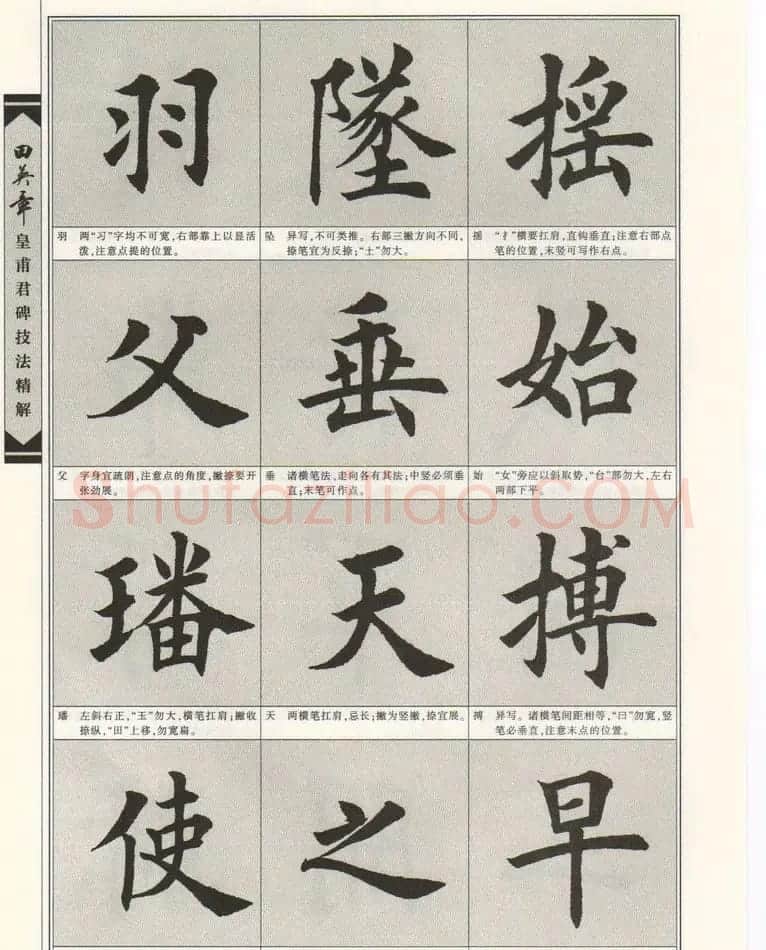 田英章
皇甫君碑技法精解
羽 墜 摇
羽 两“习”字均不可宽,右部靠上以显活
泼,注意点提的位置。
坠 异写,不可类推。右部三撇方向不同,
捺笔宜为反捺;“土”勿大。
摇 “扌”横要扛肩,直钩垂直;注意右部点
笔的位置,末竖可写作右点。
父 垂 始
父 字身宜疏朗,注意点的角度,撇捺要开
张劲展。
垂 诸横笔法、走向各有其法;中竖必须垂
直;末笔可作点。
始 “女”旁应以斜取势,“台”部勿大,左右
两部下平。
Shufaziliao.COM
璠 天 搏
璠 左斜右正,“玉”勿大,横笔扛肩;撇收
捺纵,“田”上移,勿宽扁。
天 两横笔扛肩,忌长;撇为竖撇,捺宜展。
搏 异写。诸横笔间距相等,“曰”勿宽,竖
笔必垂直,注意末点的位置。
使 之 早